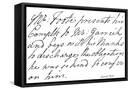 Mr Foote presents his
Complts to Mr Garrick
and begs with his thanks
to discharge the obligation
he was so kind to confer
on him.